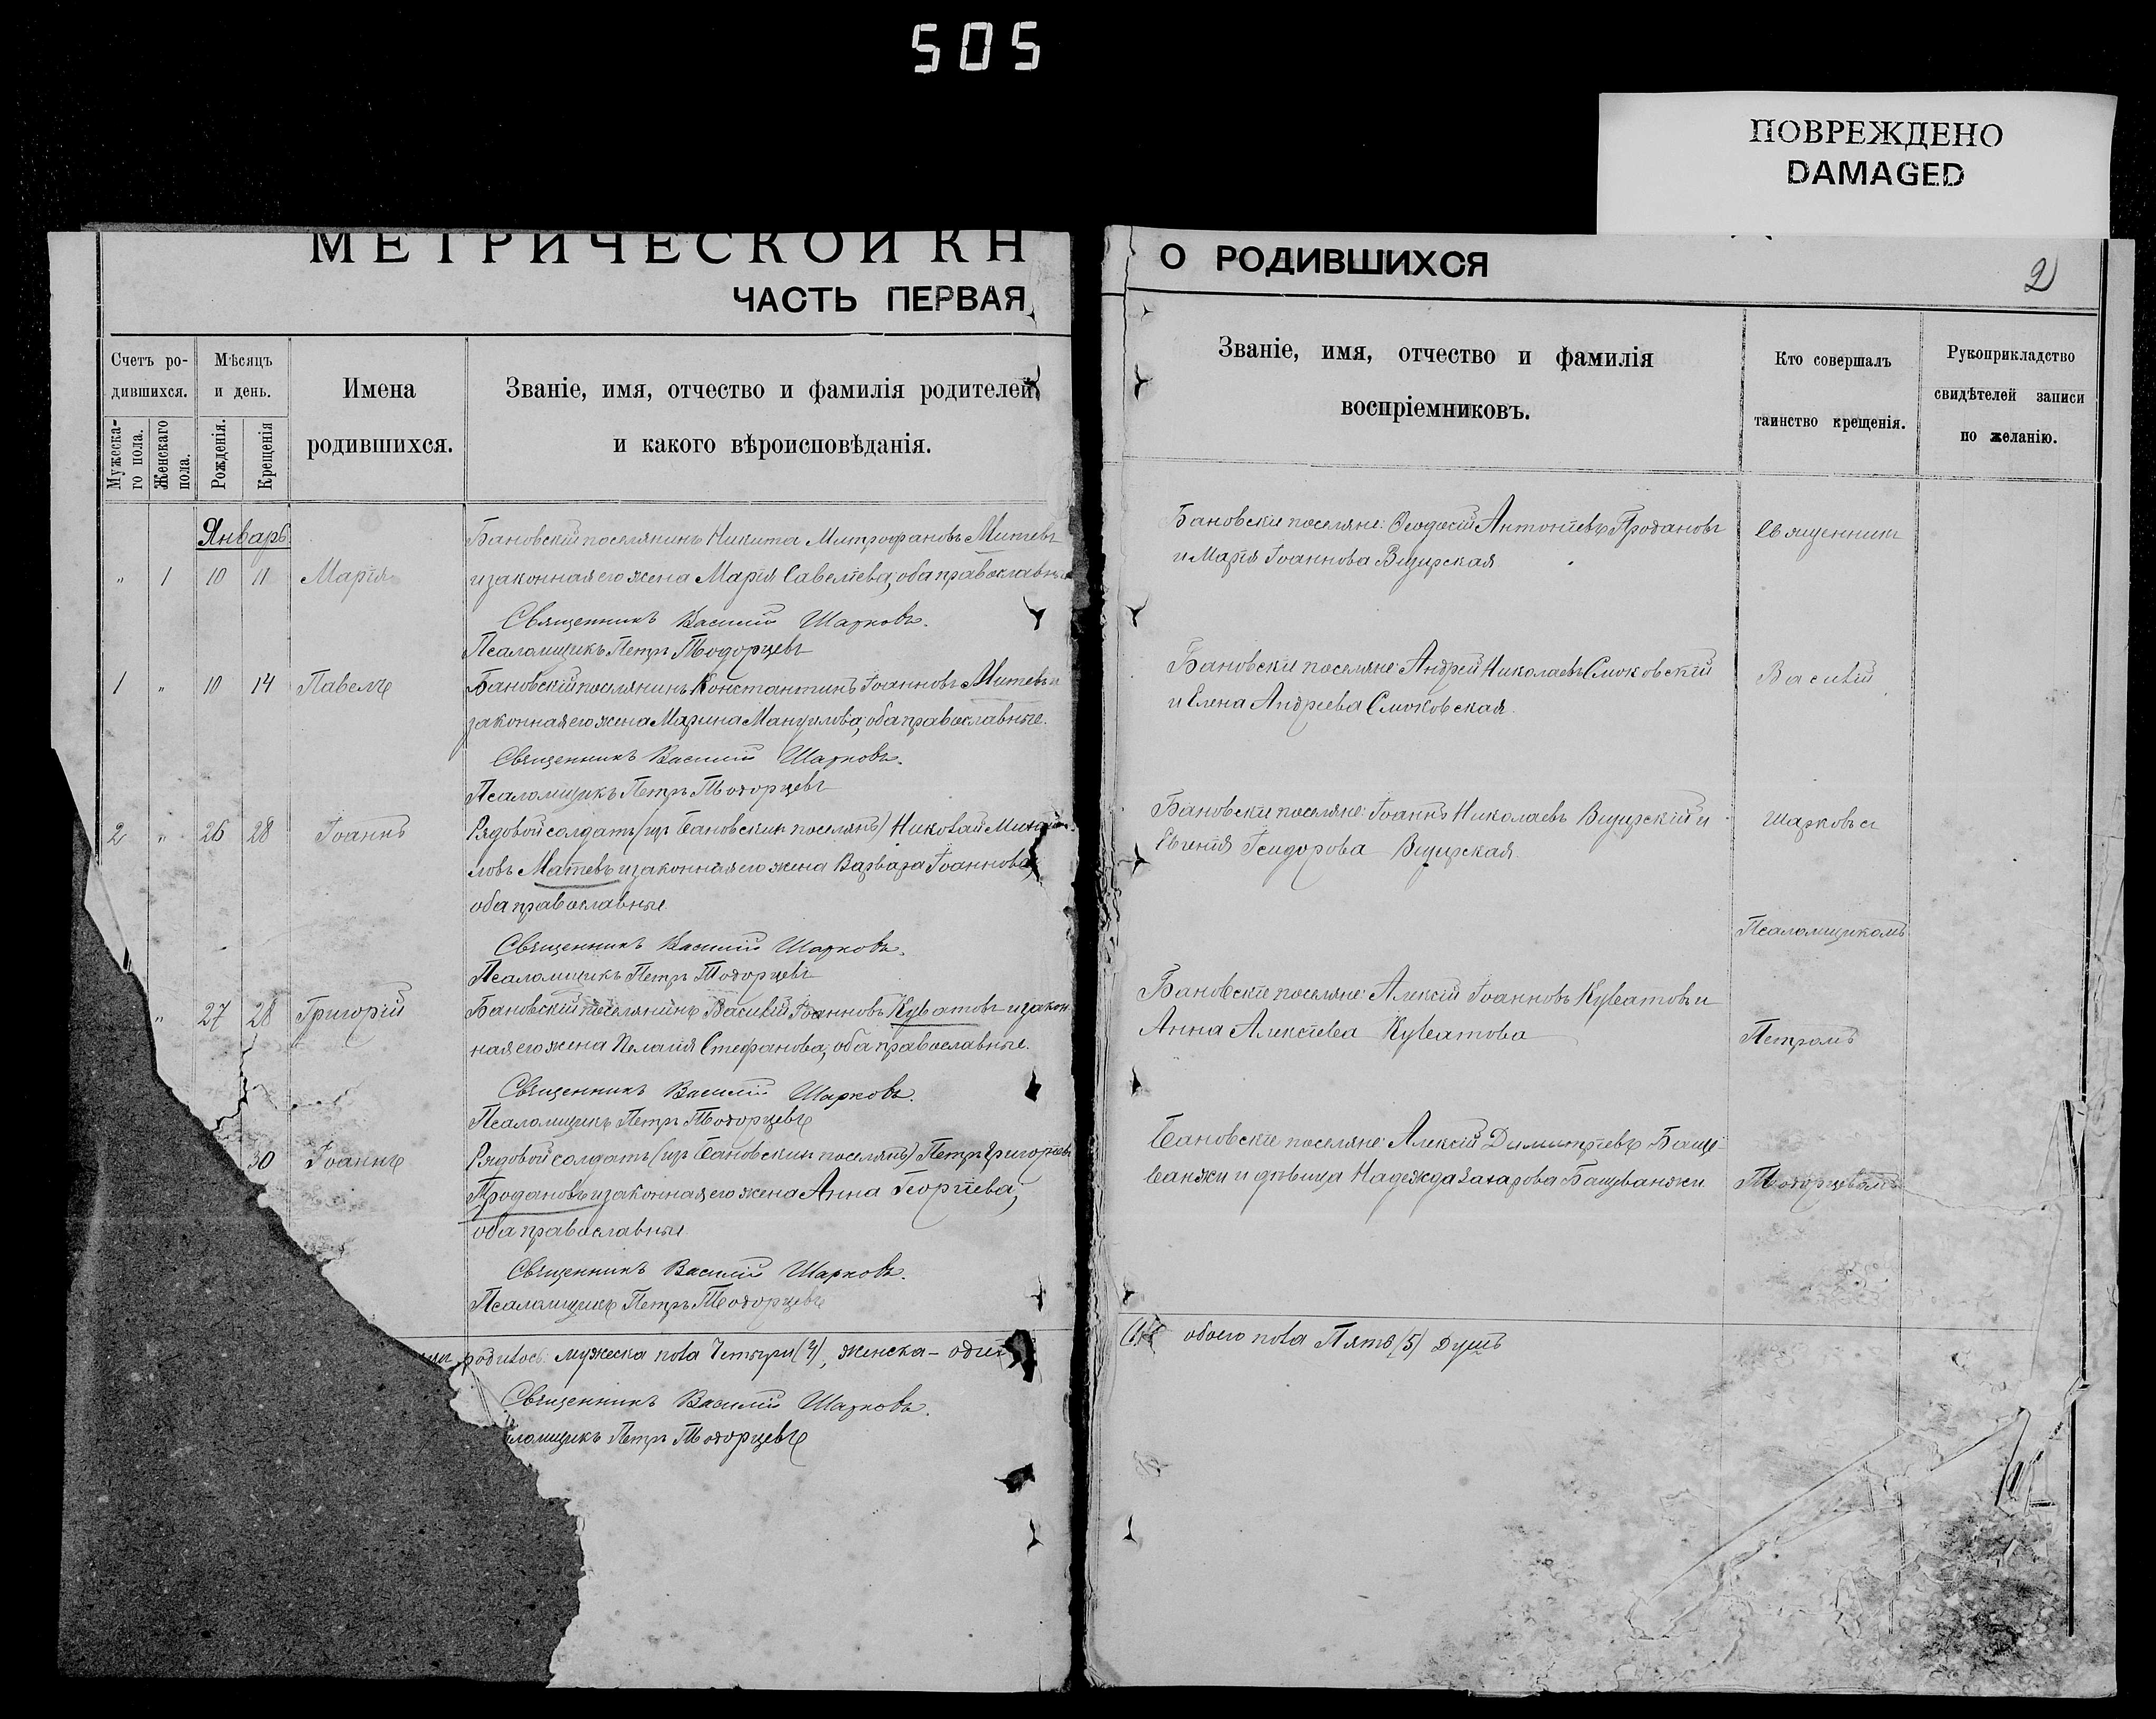 505
ПОВРЕЖДЕНО
DAMAGED
МЕТРИЧЕСКОЙ КН
ЧАСТЬ ПЕРВАЯ
Счетъ ро-
дившихся.
Мѣсяцъ
и день.
Имена
родившихся.
Званіе, имя, отчество и фамилія родителей
и какого вѣроисповѣданія.
Мужеска-
го пола.
Женскаго
пола.
Рожденія.
Крещенія
Январь
Бановскій поселянинъ Никита Митрофановъ Митевъ
" 1 10 11 Марія и законная его жена Марія Савеліева, оба православные
Священникъ Василій Шарковъ.
Псаломщикъ Петръ Тодорцевъ
1 " 10 14 Павелъ Бановскій поселянинъ Константинъ Іоанновъ Митевъ и
законная его жена Марина Мануилова, оба православные.
Священникъ Василій Шарковъ.
Псаломщикъ Петръ Тодорцевъ
2 " 26 28 Іоаннъ Рядовой солдатъ (изъ Бановскихъ поселянъ) Николай Михай-
ловъ Матевъ и законная его жена Варвара Іоаннова,
оба православные.
Священникъ Василій Шарковъ.
Псаломщикъ Петръ Тодорцевъ
" 27 28 Григорій Бановскій поселянинъ Василій Іоанновъ Куватовъ и закон
ная его жена Пелагія Стефанова, оба православные.
Священникъ Василій Шарковъ.
Псаломщикъ Петръ Тодорцевъ
30 Іоаннъ Рядовой солдатъ (изъ Бановскихъ поселянъ) Петръ Григоріевъ
Продановъ и законная его жена Анна Георгіева,
оба православные.
Священникъ Василій Шарковъ.
Псаломщикъ Петръ Тодорцевъ
родилось: мужеска пола Четыри (4), женска - одна
Священникъ Василій Шарковъ.
ломщикъ Петръ Тодорцевъ
О РОДИВШИХСЯ
2
Званіе, имя, отчество и фамилія
воспріемниковъ.
Кто совершалъ
таинство крещенія.
Рукоприкладство
свидѣтелей записи
по желанію.
Бановскіе поселяне: Ѳеодосій Антоніевъ Продановъ
и Марія Іоаннова
Священникъ
Бановскіе поселяне: Андрей Николаевъ Смоковскій
и Елена Андреева Смоковская.
Василій
Бановскіе поселяне: Іоаннъ Николаевъ и
Евгенія Ісидорова
Шарковъ съ
Псаломщикомъ
Бановскіе поселяне: Алексій Іоанновъ Куватовъ и
Анна Алексіева Куватова
Петромъ
Бановскіе поселяне: Алексій Димитріевъ Бащи-
ванжи и дѣвица Надежда Захарова Бащиванжи
Тодорцевымъ
(1) обоего пола Пять (5) душъ